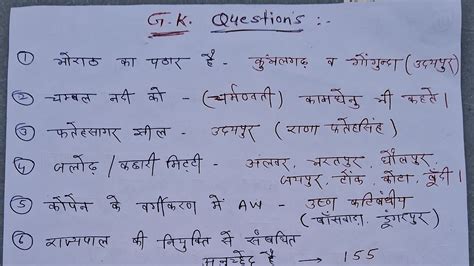 G.K. Question's :-
① भोराठ का पठार है - कुंभलगढ़ व गोगुन्दा (उदयपुर)
② चम्बल नदी को - (चर्मण्वती) कामधेनु भी कहते।
③ फतेहसागर झील - उदयपुर (राणा फतेहसिंह)
④ जलोढ़ / कछारी मिट्टी - अलवर, भरतपुर, धौलपुर,
जयपुर, टोंक, कोटा, बूँदी।
⑤ कोपेन के वर्गीकरण में AW - उष्ण कटिबंधीय
(बाँसवाडा, डूंगरपुर)
⑥ राज्यपाल की नियुक्ति से संबंधित
अनुच्छेद है → 155